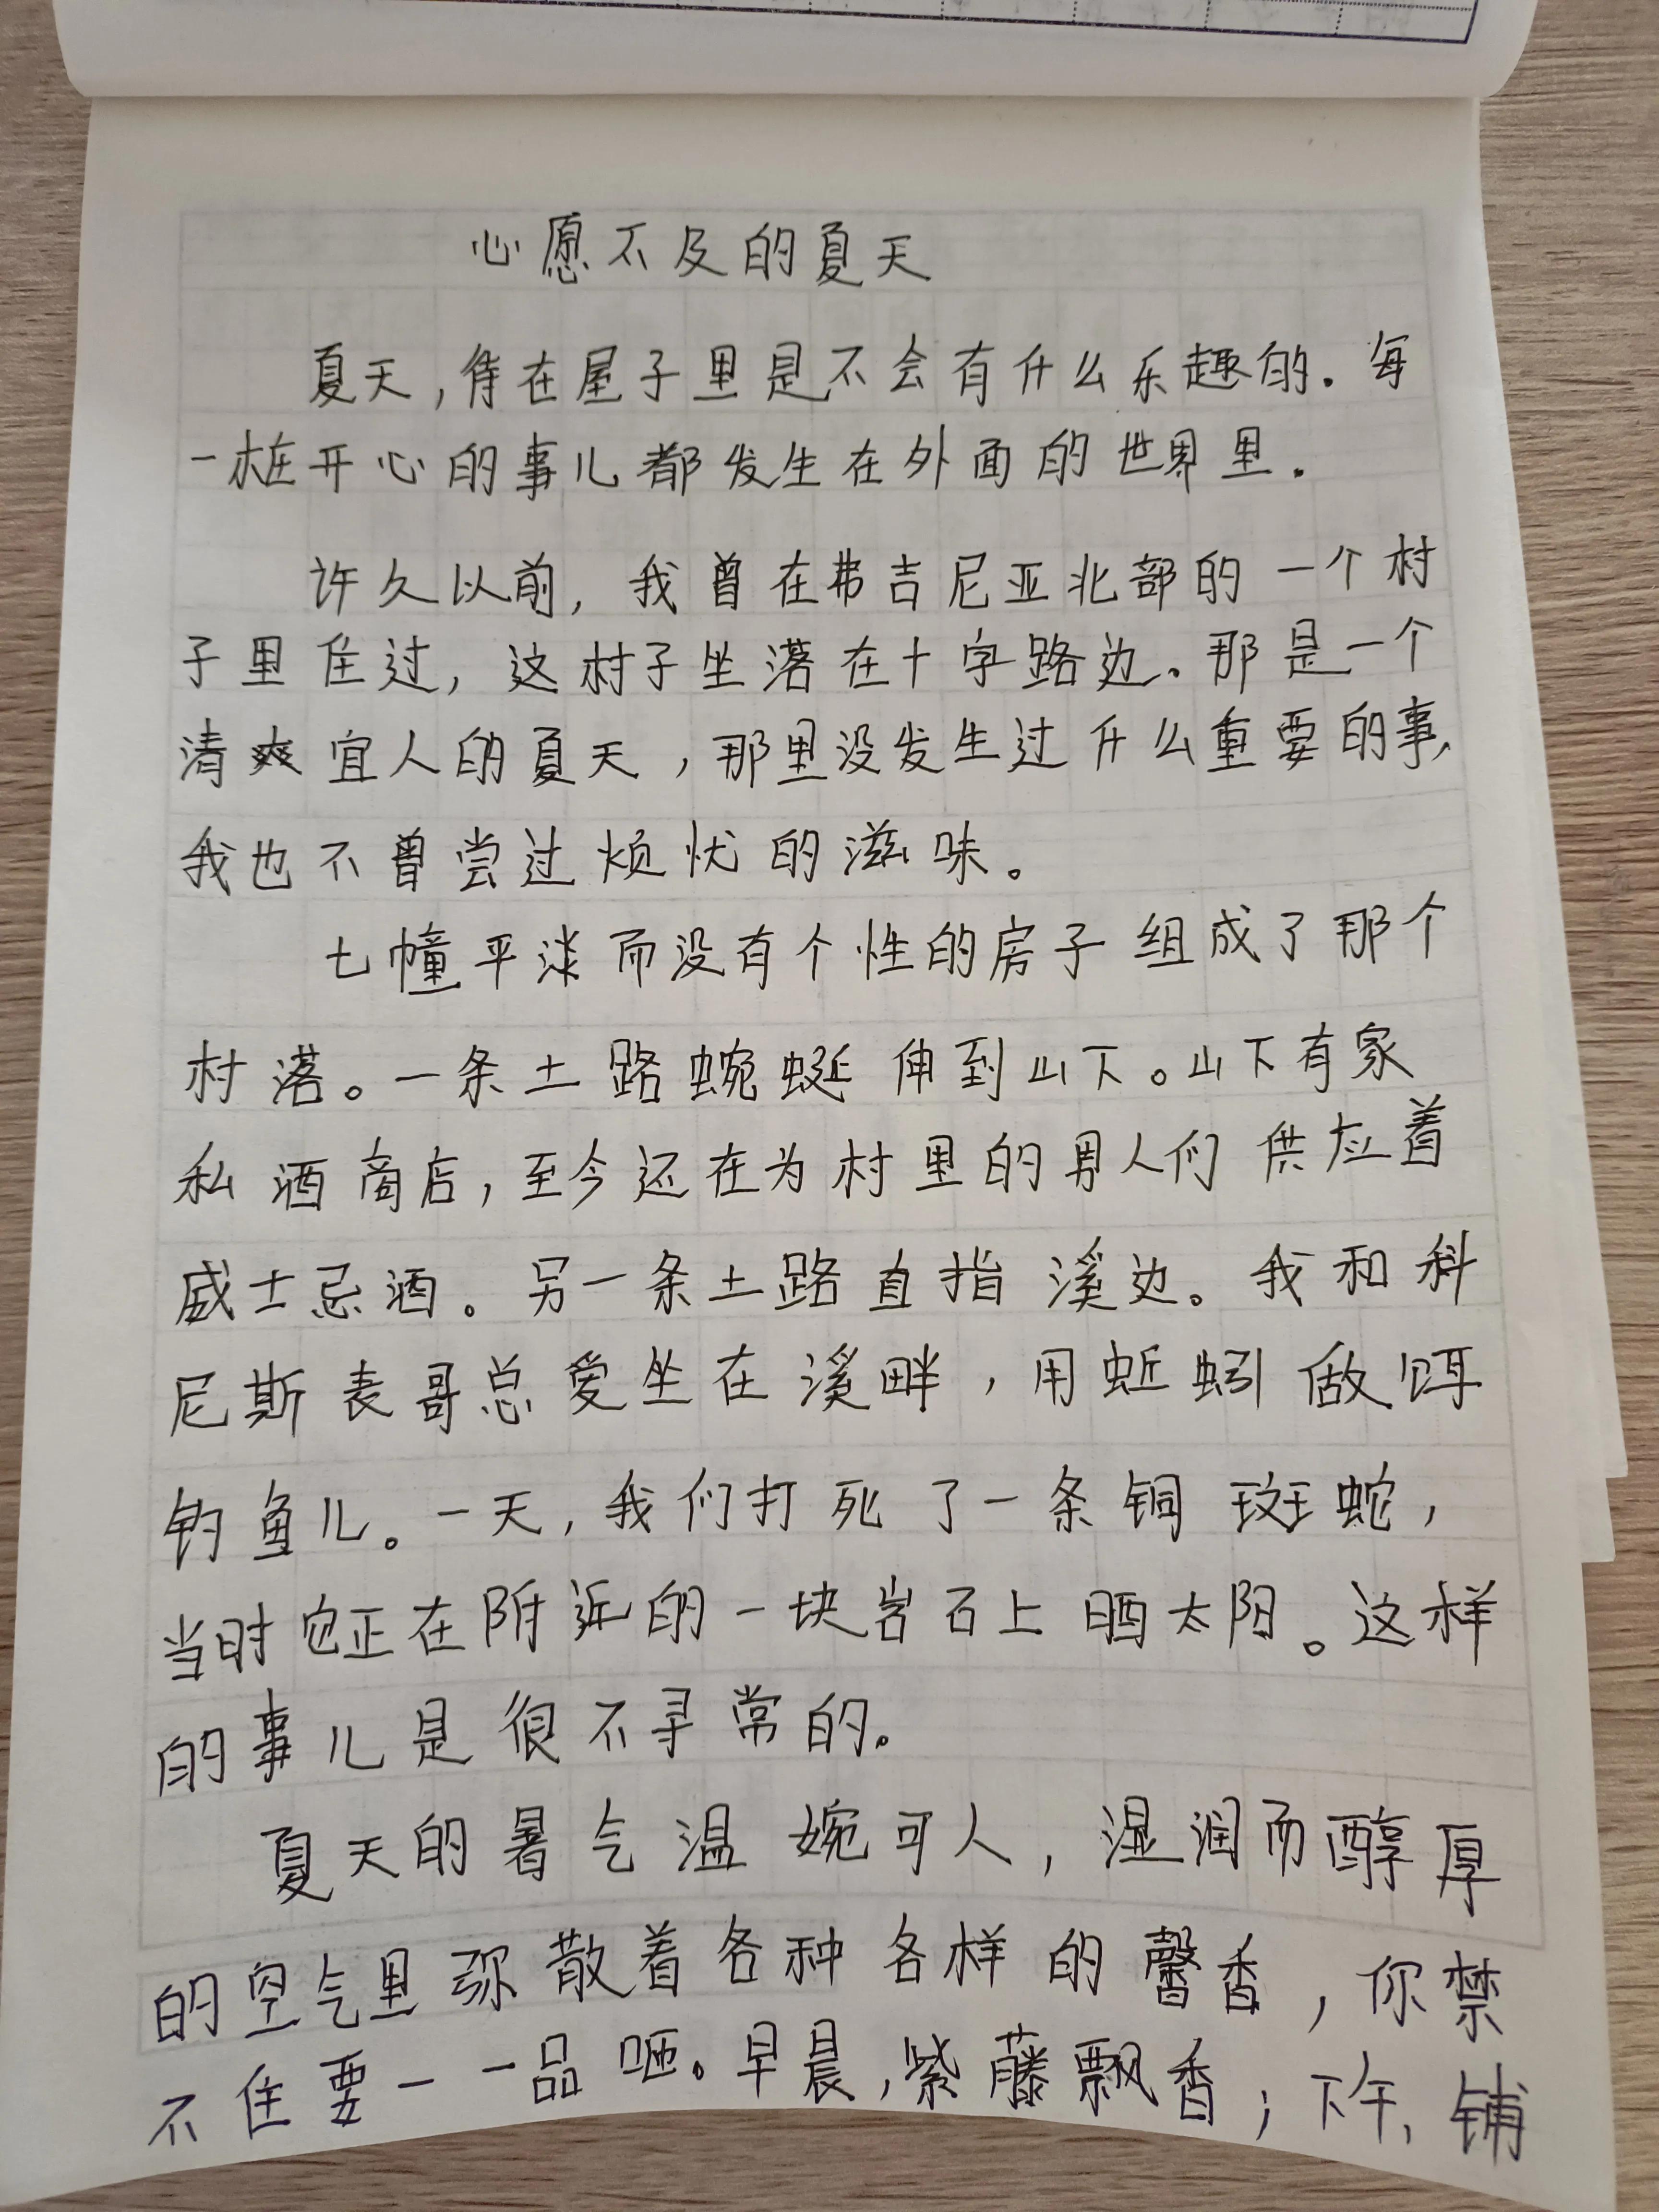 心愿不及的夏天
夏天,待在屋子里是不会有什么乐趣的.每
一桩开心的事儿都发生在外面的世界里.
许久以前,我曾在弗吉尼亚北部的一个村
子里住过,这村子坐落在十字路边。那是一个
清爽宜人的夏天,那里没发生过什么重要的事,
我也不曾尝过烦忧的滋味。
七幢平淡而没有个性的房子组成了那个
村落。一条土路蜿蜒伸到山下。山下有家
私酒商店,至今还在为村里的男人们供应着
威士忌酒。另一条土路直指溪边。我和科
尼斯表哥总爱坐在溪畔,用蚯蚓做饵
钓鱼儿。一天,我们打死了一条铜斑蛇,
当时它正在附近的一块岩石上晒太阳。这样
的事儿是很不寻常的。
夏天的暑气温婉可人,湿润而醇厚
的空气里弥散着各种各样的馨香,你禁
不住要一一品咂。早晨,紫藤飘香;下午,铺